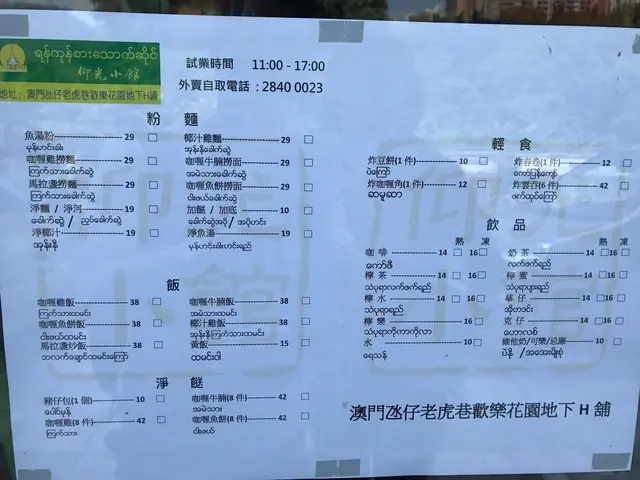 ရန်ကုန်စားသောက်ဆိုင်
仰光小館
地址：澳門氹仔老虎巷歡樂花園地下H舖
試業時間 11:00 - 17:00
外賣自取電話：2840 0023
粉 麵
魚湯粉 29
မုန့်ဟင်းခါး
咖喱雞撈麵 29
ကြက်သားခေါက်ဆွဲ
馬拉盞撈麵 29
ကြက်သားခေါက်ဆွဲ
淨麵 / 淨河 19
ခေါက်ဆွဲ / လွှပ်ခေါက်ဆွဲ
淨椰汁 19
အုန်းနို့
椰汁雞麵 29
အုန်းနို့ခေါက်ဆွဲ
咖喱牛腩撈面 29
အမဲသားခေါက်ဆွဲ
咖喱魚餅撈面 29
ငါးဖယ်ခေါက်ဆွဲ
加餸 / 加底 10
ခေါက်ဆွဲအပို/ အပိုဟင်း
淨魚湯 19
မုန့်ဟင်းခါးဟင်းရည်
飯
咖喱雞飯 38
ကြက်သားထမင်း
咖喱魚餅飯 38
ငါးဖယ်ထမင်း
馬拉盞炒飯 38
ဘလက်ချောင်ထမင်းကြော်
咖喱牛腩飯 38
အမဲသားထမင်း
椰汁雞飯 38
အုန်းနို့ကြက်သားထမင်း
黃飯 15
ထမင်းဝါ
淨 餸
豬仔包(1 個) 10
ပေါင်မုန့်
咖喱雞(8 件) 42
ကြက်သား
咖喱牛腩(8 件) 42
အမဲသား
咖喱魚餅(8 件) 42
ငါးဖယ်
輕 食
炸豆餅(1 件) 10
ပဲကြော်
炸咖喱角(1 件) 12
ဆမူဆာ
炸春卷(1 件) 12
ကော်ပြန့်ကြော်
炸雲吞(6 件) 42
ဖက်ထုပ်ကြော်
飲 品
熱 凍
咖 啡 14 16
ကော်ဖီ
檸 茶 14 16
သံပုရာလက်ဖက်ရည်
檸 水 14 16
သံပုရာရည်
檸 樂 14 16
သံပုရာကိုကာကိုလာ
水 10
ရေသန့်
熱 凍
奶 茶 14 16
လက်ဖက်ရည်
檸 蜜 14 16
သံပုရာပျားရည်
華 仔 14 16
အိုဗာတင်း
克 仔 14 16
ဟောလစ်
維他奶/可樂/忌廉 10
ပဲနို့ / အအေးမျိုးစုံ
澳門氹仔老虎巷歡樂花園地下 H 舖